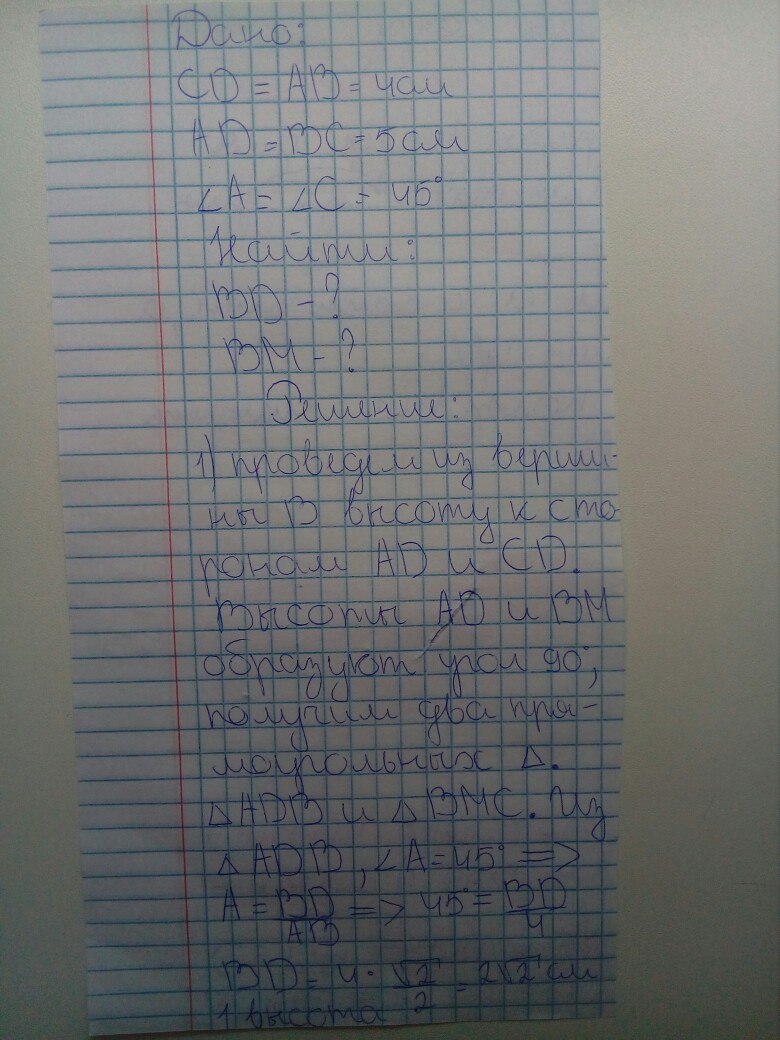 Дано:
CD = AB = 4см
AD = BC = 5см
∠A = ∠C = 45°
Найти:
BD - ?
BM - ?
Решение:
1) проведем из верши-
ны B высоту к сто
ронам AD и CD.
Высоты AD и BM
образуют угол 90°,
получим два пря-
моугольных Δ.
ΔADB и ΔBMC. Из
ΔADB, ∠A = 45° =>
A = BD/AB => 45° = BD/4
BD = 4 · √2/2 = 2√2 см
1 высота